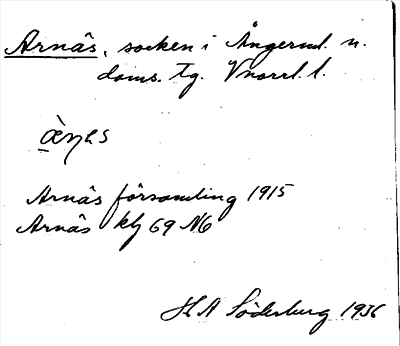 Arnäs, socken i Ångerml. n.
doms. tg. Vnorrl. l.
Arnäs församling 1915
Arnäs kbl 69 NO
H A Söderberg 1936